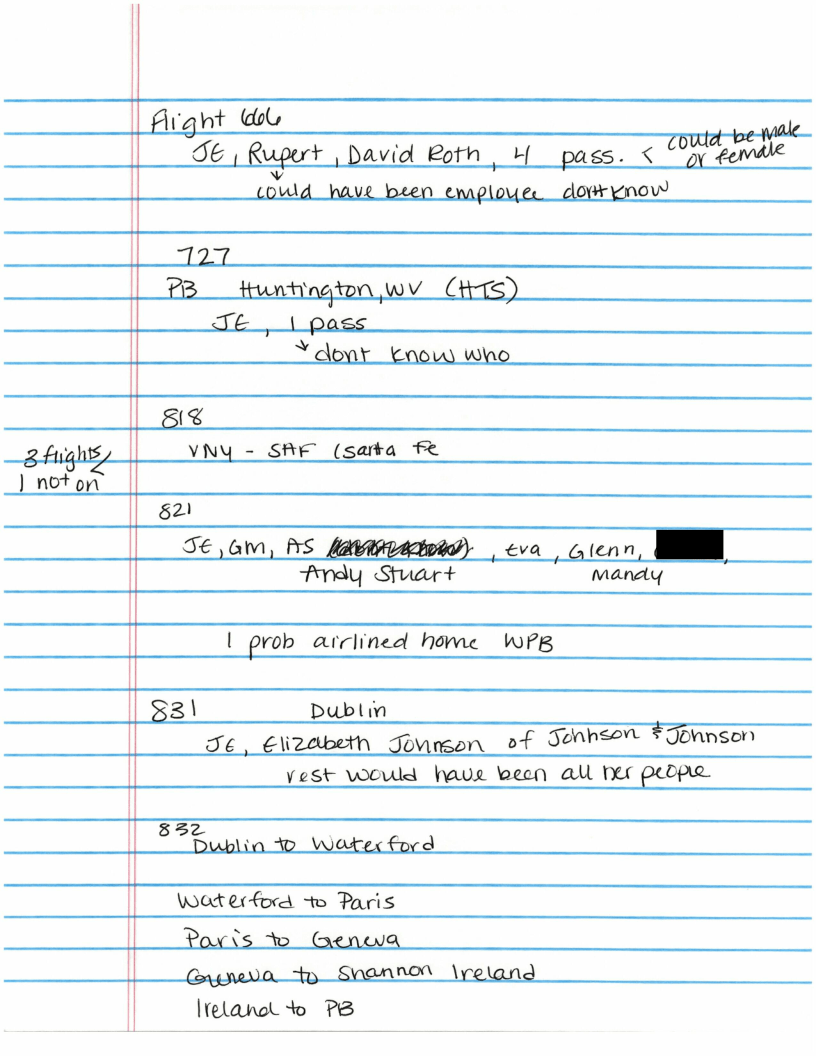 Flight 666
JE, Rupert, David Roth, 4 pass. < could be male or female
↓
could have been employee don't know
727
PB Huntington, WV (HTS)
JE, 1 pass
↓ dont know who
818
VNY - SAF (santa Fe
3 flights <
1 not on
821
JE, GM, AS , Eva, Glenn, ,
Andy Stuart Mandy
1 prob airlined home WPB
831 Dublin
JE, Elizabeth Johnson of Johnson & Johnson
rest would have been all her people
832
Dublin to Waterford
Waterford to Paris
Paris to Geneva
Geneva to Shannon Ireland
Ireland to PB